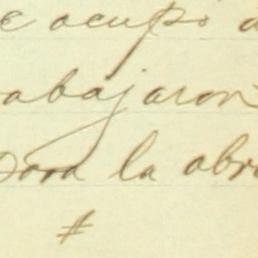 e ocupó a
abajaron
para la obra
#